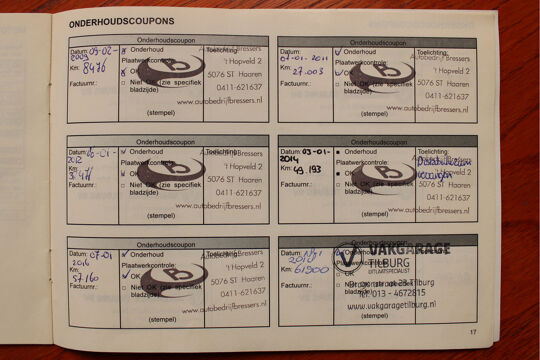 ONDERHOUDSCOUPONS
Onderhoudscoupon
Datum: 03-02-2009
Onderhoud
Toelichting:
Km: 8476
Plaatwerkcontrole:
OK
Niet OK (zie specifiek bladzijde)
Factuurnr.:
(stempel)
Autobedrijf Bressers
't Hopveld 2
5076 ST Haaren
0411-621637
www.autobedrijfbressers.nl
Onderhoudscoupon
Datum: 07-01-2011
Onderhoud
Toelichting:
Km: 27.003
Plaatwerkcontrole:
OK
Niet OK (zie specifiek bladzijde)
Factuurnr.:
(stempel)
Autobedrijf Bressers
't Hopveld 2
5076 ST Haaren
0411-621637
www.autobedrijfbressers.nl
Onderhoudscoupon
Datum: 06-01-2012
Onderhoud
Toelichting:
Km:
Plaatwerkcontrole:
OK
Niet OK (zie specifiek bladzijde)
Factuurnr.:
(stempel)
Autobedrijf Bressers
't Hopveld 2
5076 ST Haaren
0411-621637
www.autobedrijfbressers.nl
Onderhoudscoupon
Datum: 03-01-2014
Onderhoud
Toelichting:
Km: 49.193
Plaatwerkcontrole:
OK
Niet OK (zie specifiek bladzijde)
Factuurnr.:
(stempel)
Autobedrijf Bressers
't Hopveld 2
5076 ST Haaren
0411-621637
www.autobedrijfbressers.nl
Onderhoudscoupon
Datum: 07-01 2016
Onderhoud
Toelichting:
Km: 57.160
Plaatwerkcontrole:
OK
Niet OK (zie specifiek bladzijde)
Factuurnr.:
(stempel)
Autobedrijf Bressers
't Hopveld 2
5076 ST Haaren
0411-621637
www.autobedrijfbressers.nl
Onderhoudscoupon
Datum:
Km: 61900
Plaatwerkcontrole:
OK
Factuurnr.:
(stempel)
VAKGARAGE
TILBURG
UITLAATSPECIALIST
Tilburg
Tel. 013 - 4672815
www.vakgaragetilburg.nl
17